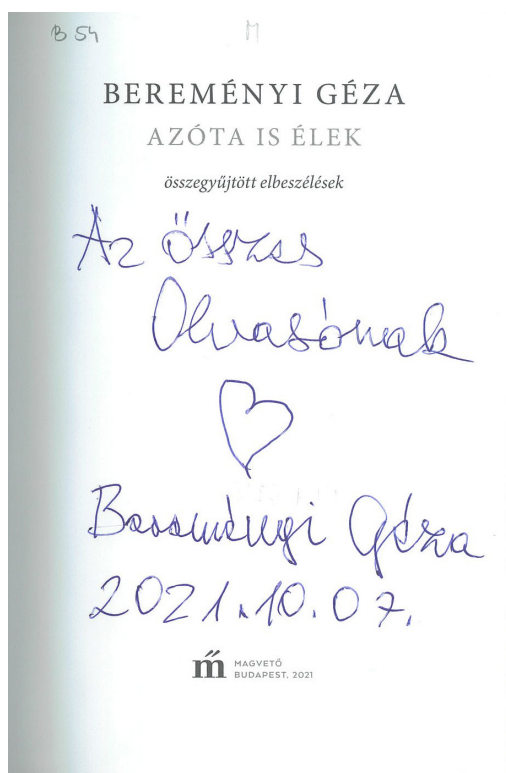 B 54 M
BEREMÉNYI GÉZA
AZÓTA IS ÉLEK
összegyűjtött elbeszélések
Az összes
Olvasónak
Bereményi Géza
2021.10.07.
MAGVETŐ
BUDAPEST, 2021